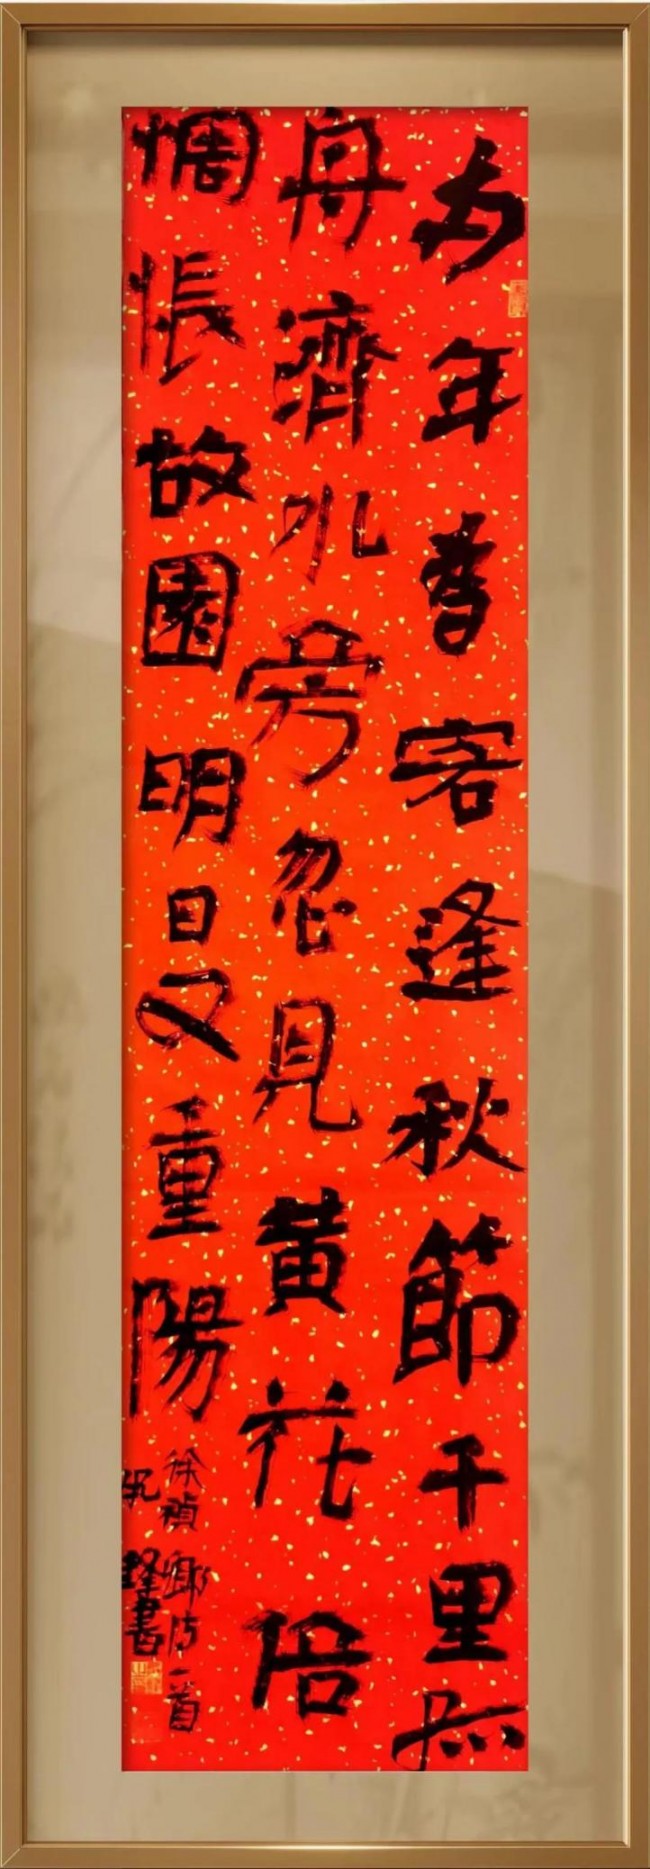 两年客逢秋節千里孤
舟濟水旁忽見黄花倍
惆悵故園明日又重陽
徐禎卿诗一首
鋒書